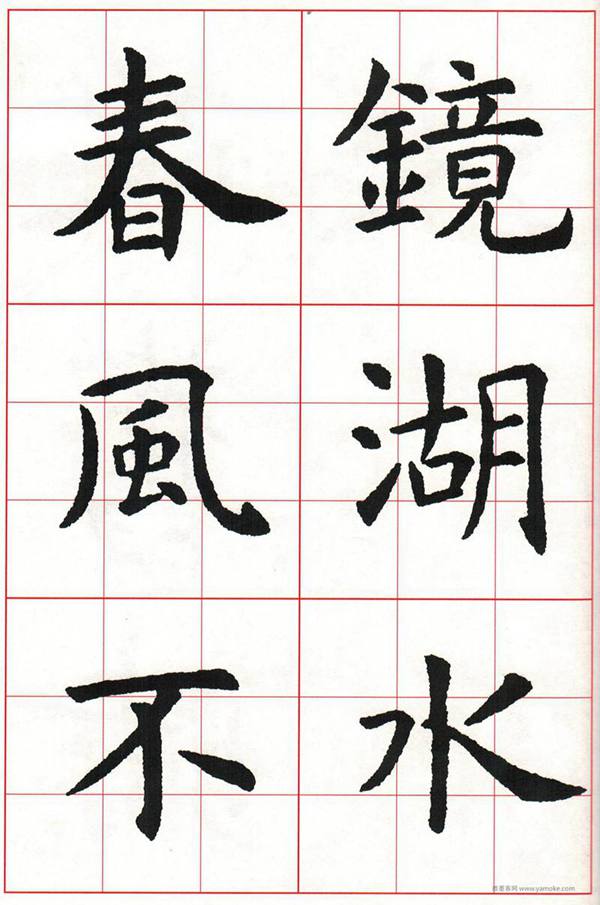 鏡湖水
春風不
西墨客网 www.yamoke.com